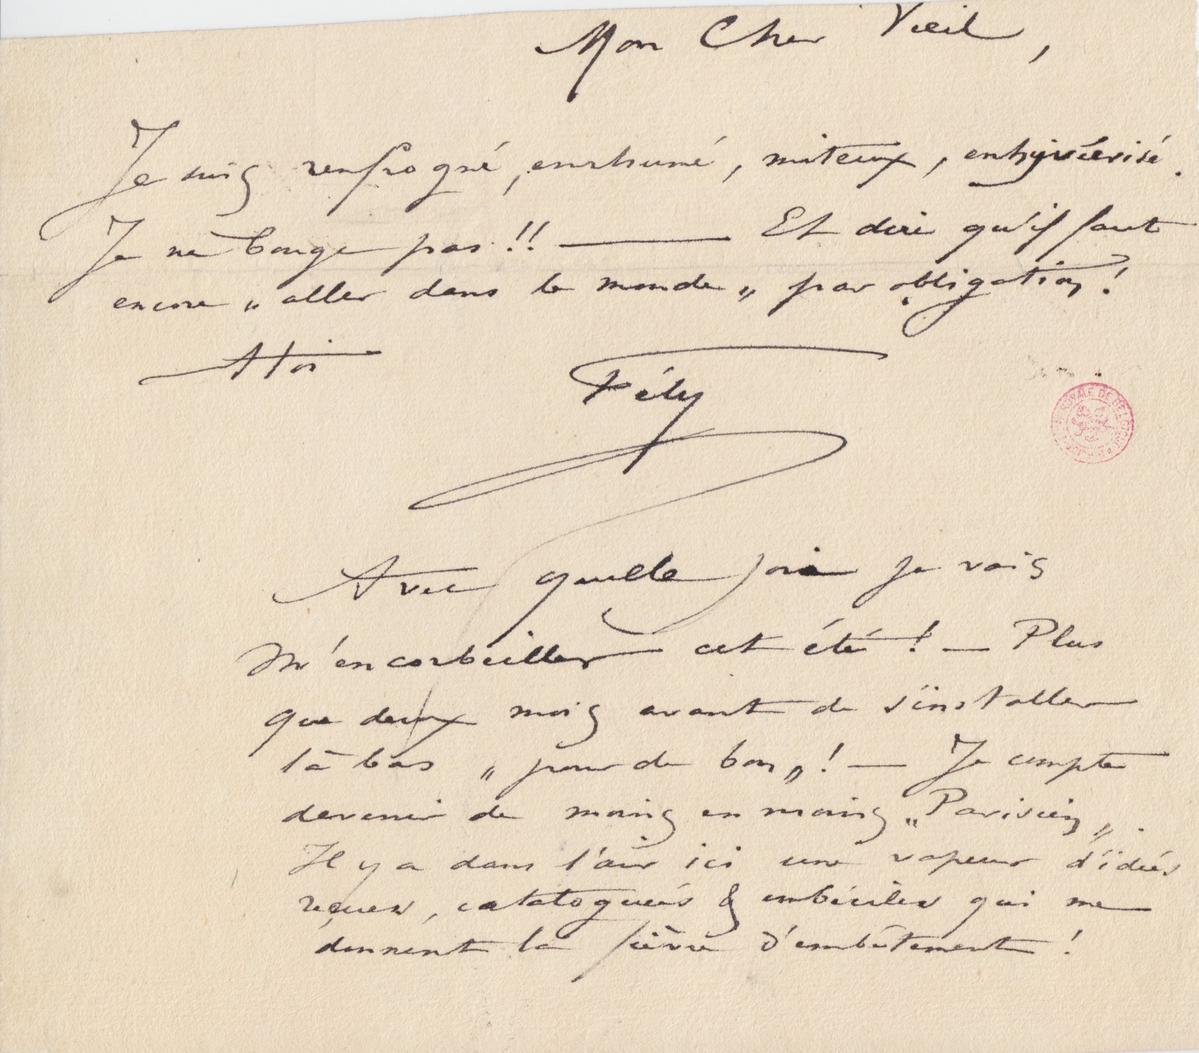 Mon Cher Vieil,
Je suis renfrogné, enrhumé, miteux,
Je ne bouge pas !! — Et dire qu'il faut
encore „ aller dans le monde „ par obligation !
A toi Fély
ROYALE DE BELGIQUE
Avec quelle joie je vais
m'encorbeiller cet été ! — Plus
que deux mois avant de s'installer
là bas „ pour de bon „ ! — Je compte
devenir de moins en moins „ Parisien „.
Il y a dans l'air ici une vapeur d'idées
reçues, cataloguées & imbéciles qui me
donnent la fièvre d'embêtement !